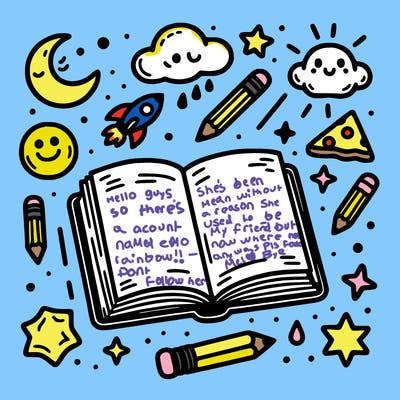 Hello guys
so there's
a acount
named echo
rainbow!! –
Dont
Follow her
She's been
mean without
a reason she
used to be
My friend but
now where no
any ways Pls Follow
Melo Bye